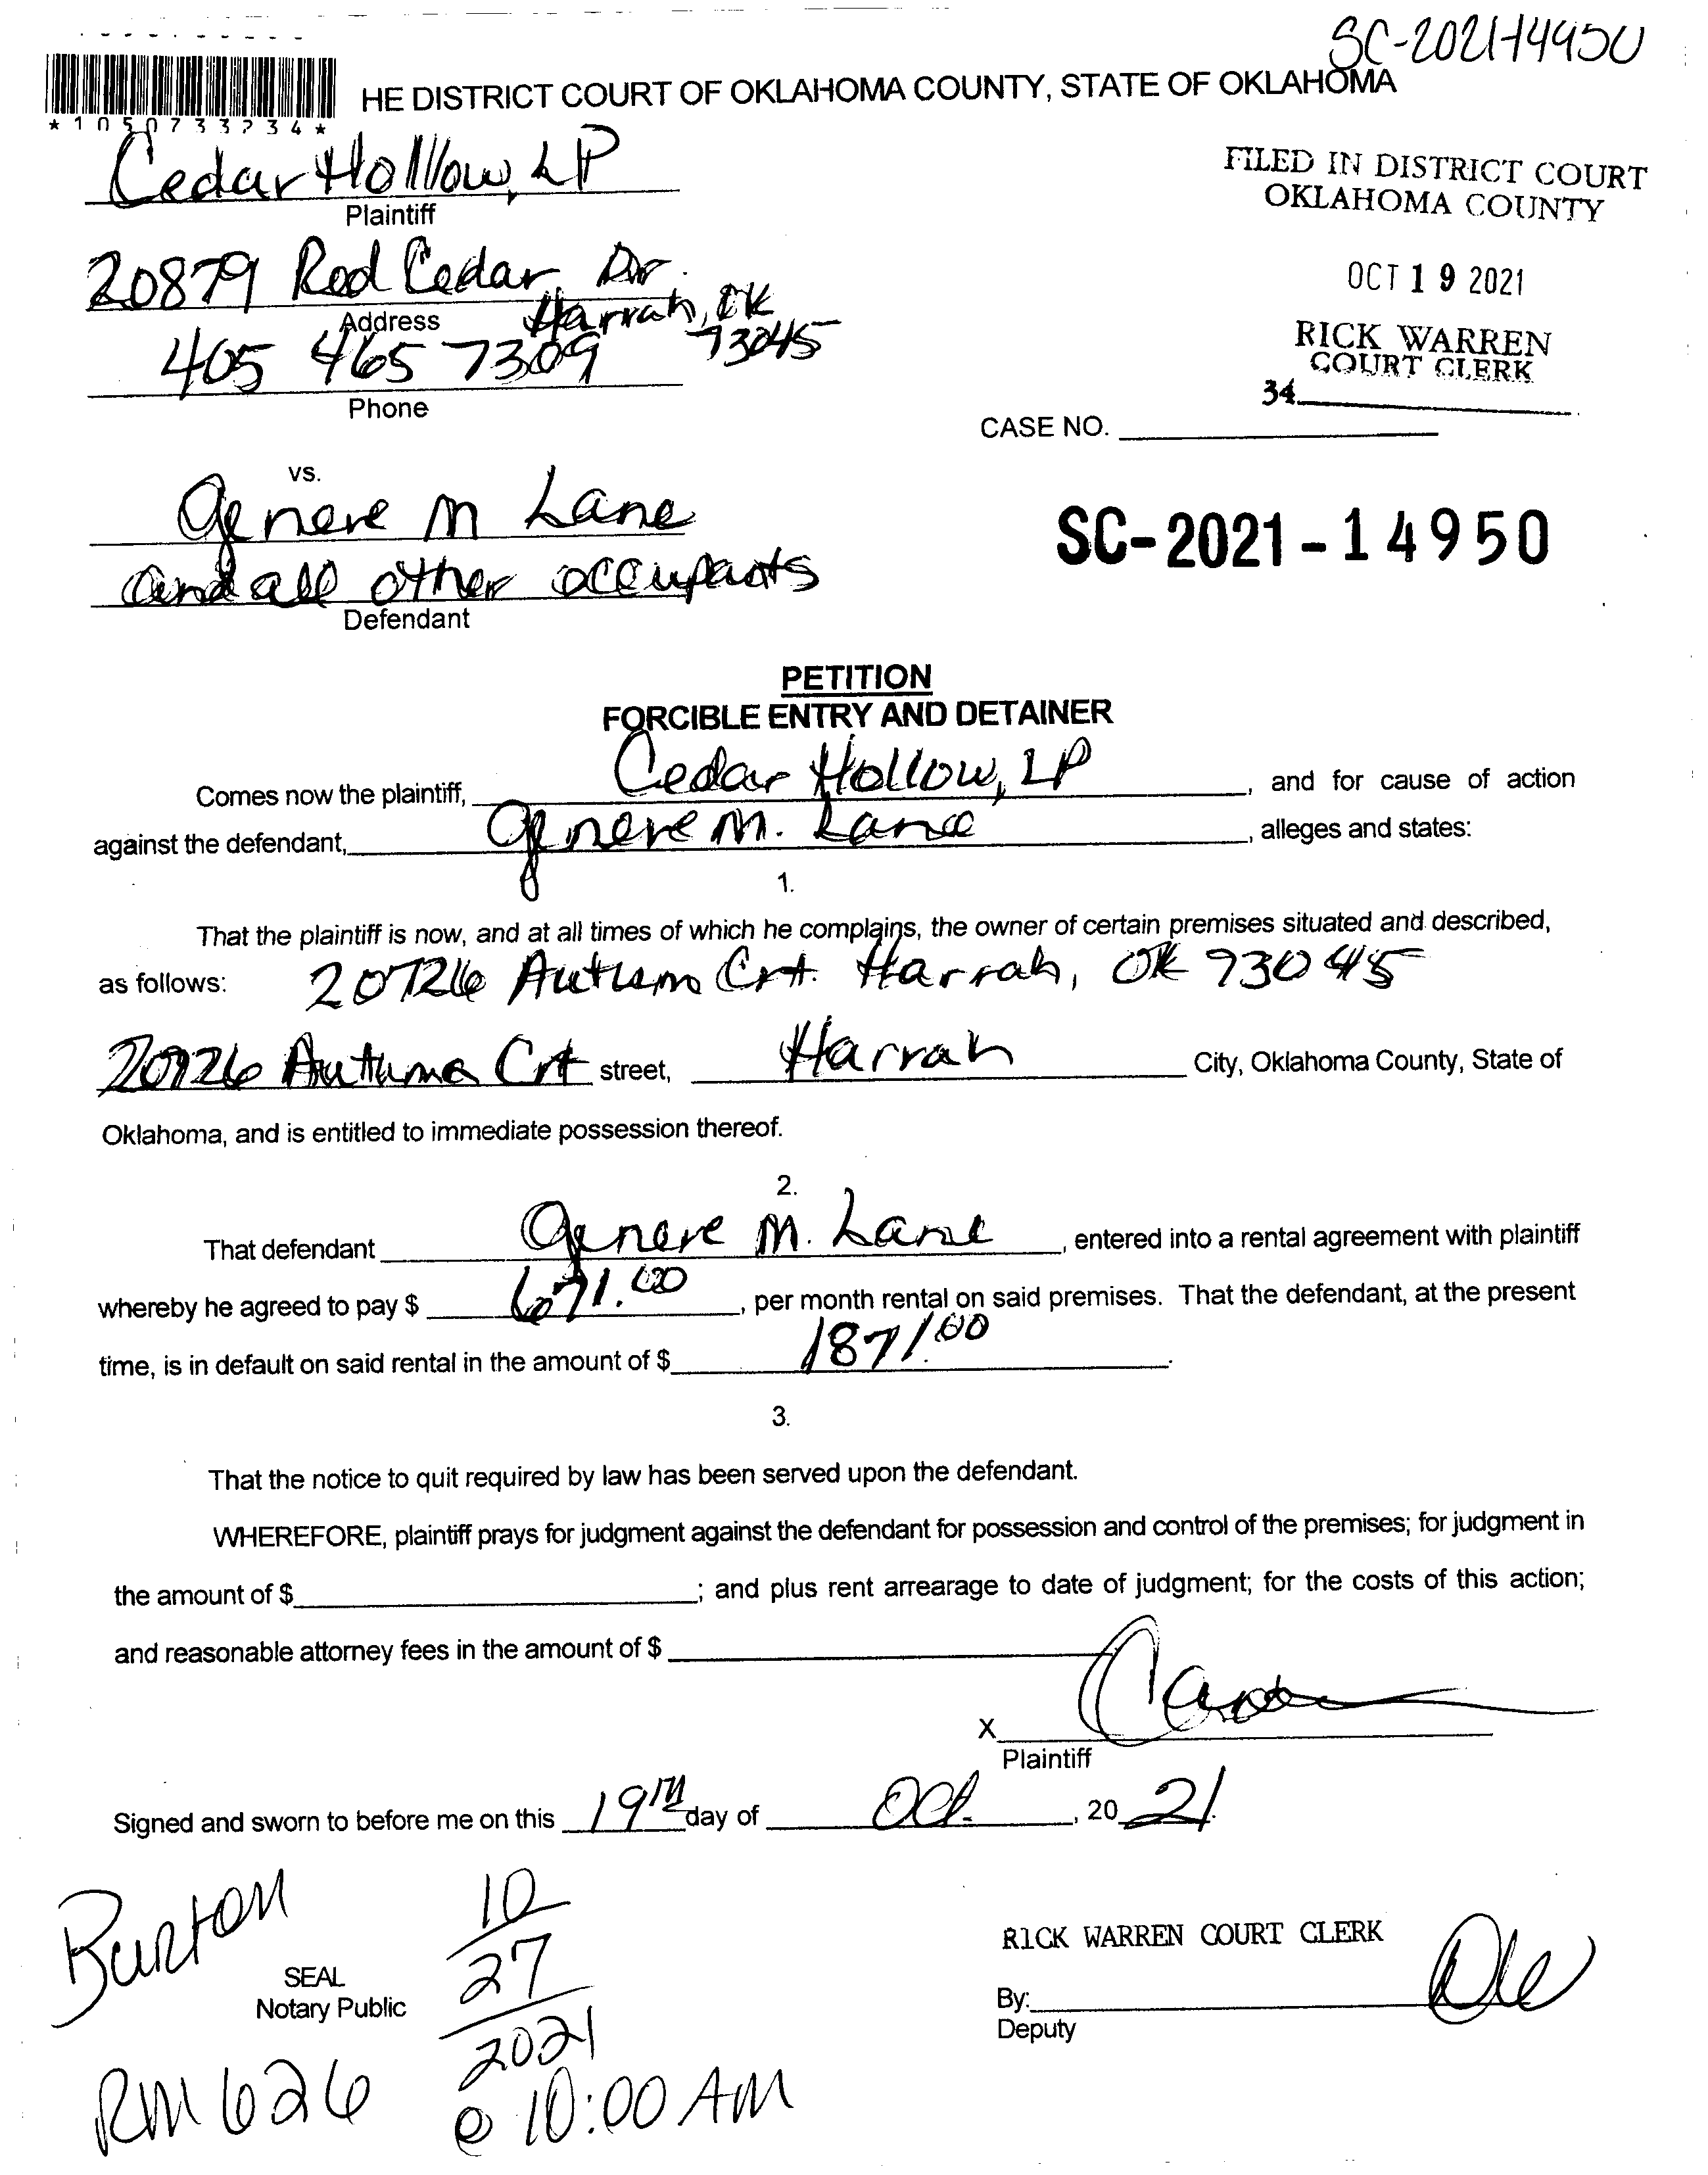 SC-2021-14950
HE DISTRICT COURT OF OKLAHOMA COUNTY, STATE OF OKLAHOMA
*1050733234*
Cedar Holllow, LP
Plaintiff
FILED IN DISTRICT COURT
OKLAHOMA COUNTY
20879 Red Cedar Dr.
Harrah, OK
73045
Address
OCT 19 2021
405 465 7309
Phone
RICK WARREN
COURT CLERK
34
CASE NO.
vs.
Genere M Lane
and all other occupants
Defendant
SC-2021-14950
PETITION
FORCIBLE ENTRY AND DETAINER
Comes now the plaintiff, Cedar Hollow, LP, and for cause of action
against the defendant, Genere M. Lane, alleges and states:
1.
That the plaintiff is now, and at all times of which he complains, the owner of certain premises situated and described,
as follows: 20726 Autumn Crt. Harrah, OK 73045
20726 Autumn Crt street, Harrah City, Oklahoma County, State of
Oklahoma, and is entitled to immediate possession thereof.
2.
That defendant Genere M. Lane, entered into a rental agreement with plaintiff
whereby he agreed to pay $ 671.00, per month rental on said premises. That the defendant, at the present
time, is in default on said rental in the amount of $ 1871.00.
3.
That the notice to quit required by law has been served upon the defendant.
WHEREFORE, plaintiff prays for judgment against the defendant for possession and control of the premises; for judgment in
the amount of $; and plus rent arrearage to date of judgment; for the costs of this action;
and reasonable attorney fees in the amount of $
X
Plaintiff
Signed and sworn to before me on this 19th day of Oct., 20 21.
Burton
10/27/2021
SEAL
Notary Public
RICK WARREN COURT CLERK
By:
Deputy
RM 626
@ 10:00 AM